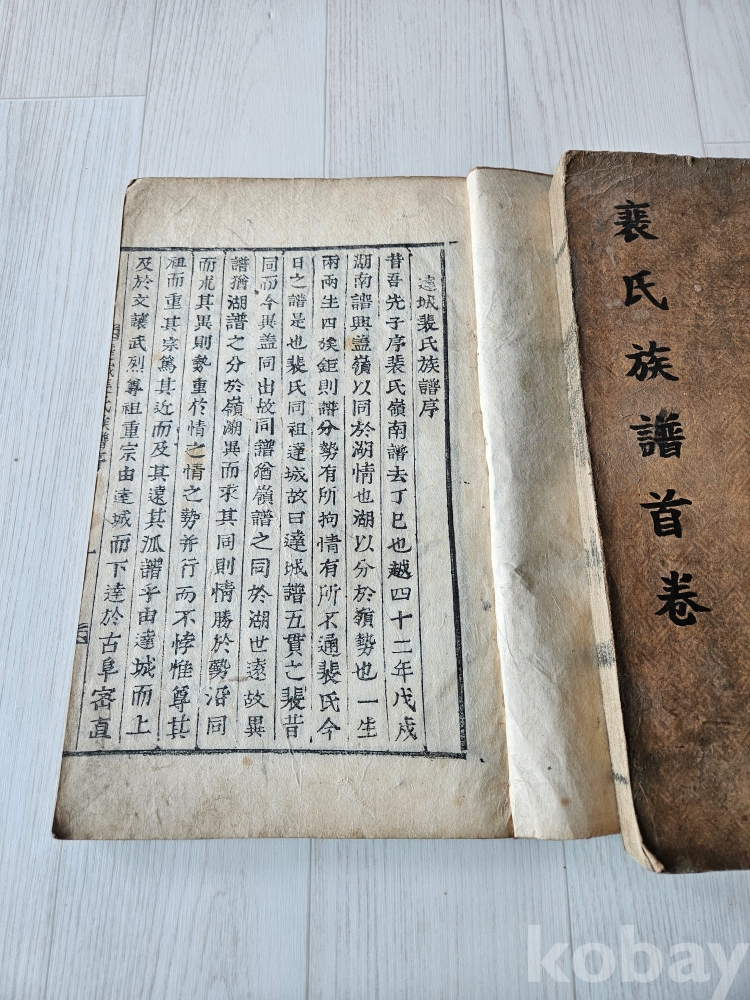 裵氏族譜首卷
達城裴氏族譜序
昔吾先子序裴氏嶺南譜去丁巳也越四十二年戊戍
湖南譜興盖嶺以同於湖情也湖以分於嶺勢也一生
兩兩生四族鉅則譜分勢有所拘情有所不通裴氏今
日之譜是也裴氏同祖達城故曰達城譜五貫之裴昔
同而今異盖同出故同譜猶嶺譜之同於湖世遠故異
譜猶湖譜之分於嶺湖異而求其同則情勝於勢沿同
而求其異則勢重於情之情之勢并行而不悖惟尊其
祖而重其宗篤其近而及其遠其派譜乎由達城而上
及於文讓武烈尊祖重宗由達城而下達於古阜審直
kobay